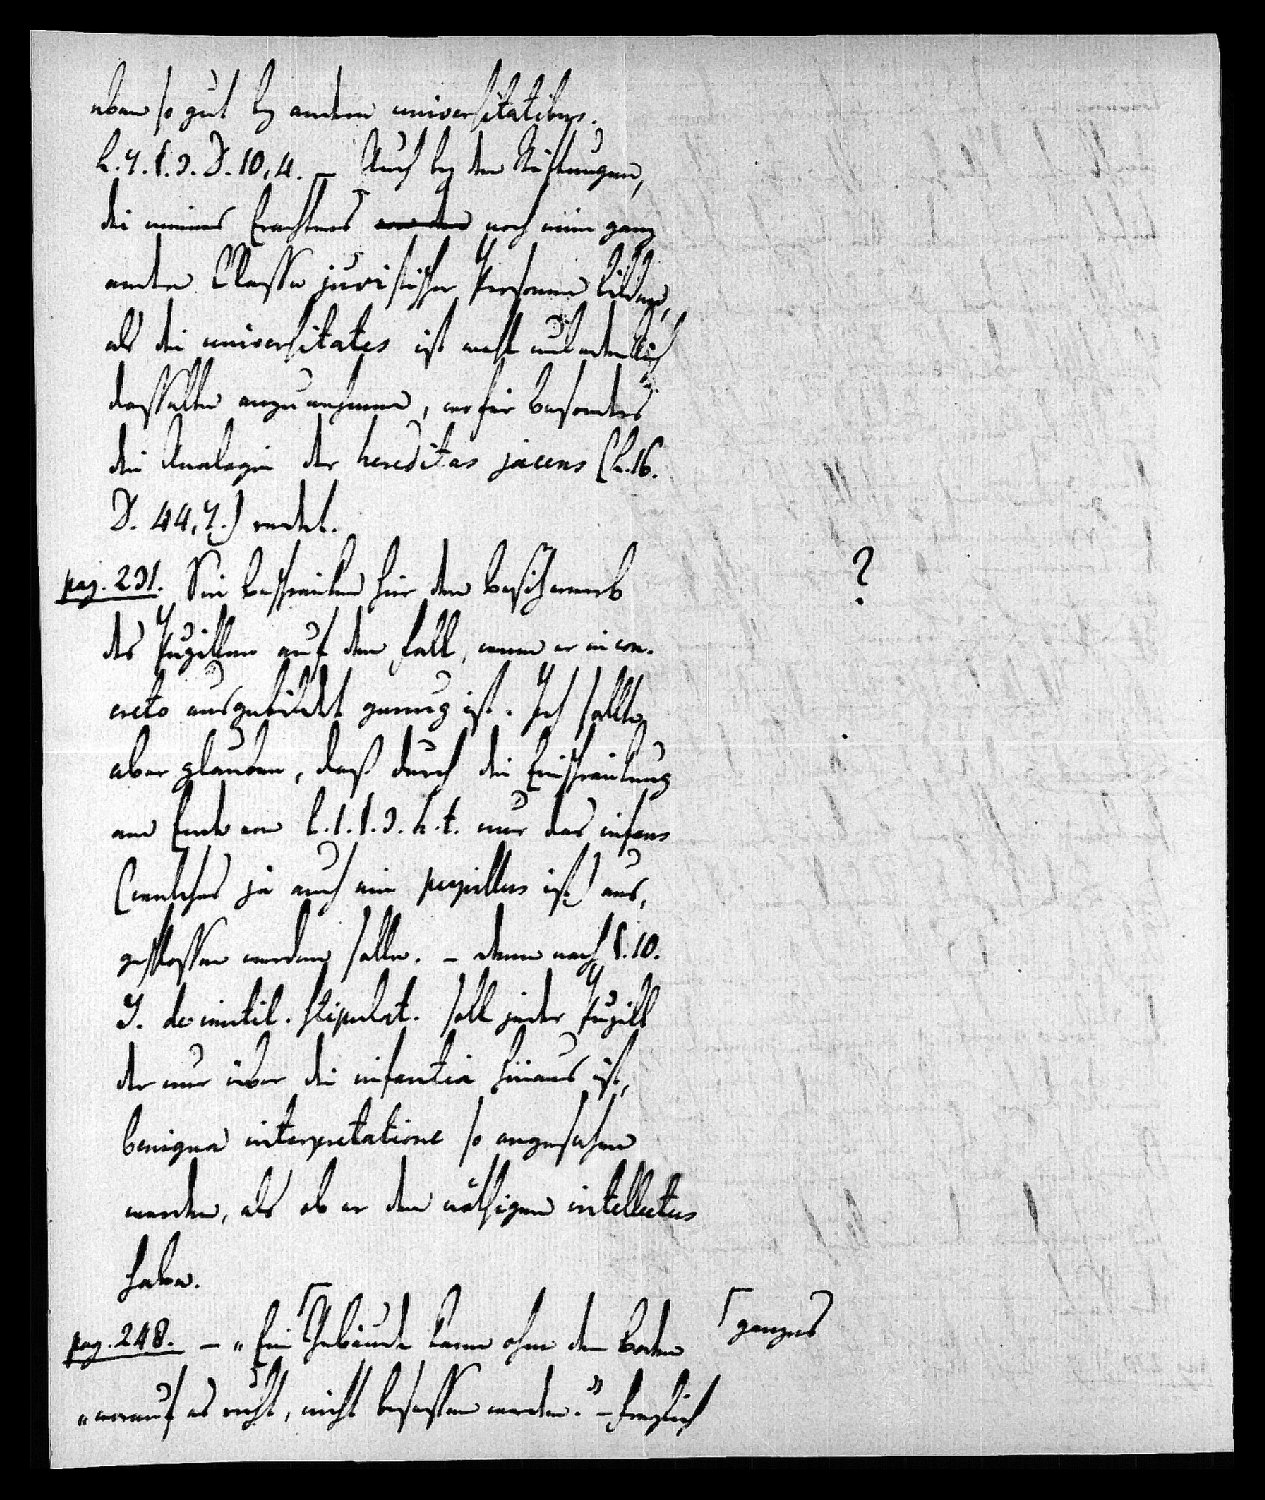 eben so gut bey andern universitatibus.
L. 7. §. 3. D. 10, 4. – Auch bey den Stiftungen,
die meines Erachtens noch eine ganz
andre Classe juristischer Personen bilden,
als die universitates ist wohl unbedenklich
dasselbe anzunehmen, wofür besonders
die Analogie der hereditas jacens (L. 16.
D. 44, 7.) redet.
pag. 231. Sie beschränken hier den Besitzerwerb
des Pupillen auf den Fall, wenn er in con-
creto ausgebildet genug ist. Ich sollte
aber glauben, daß durch die Einschränkung
am Ende von L. 1. §. 3. h. t. nur das infans
(welches ja auch ein pupillus ist) aus,
geschlossen werden solle. – denn nach §. 10.
J. de inutil. stipulat. soll jeder Pupill
der nur über die infantia hinaus ist,
benigna interpretatione so angesehen
werden, als ob er den nöthigen intellectus
habe.
pag. 248. – „Ein ⌈Gebäude kann ohne den Boden
„worauf es ruht, nicht besessen werden.” – Freylich
?
⌈ganzes